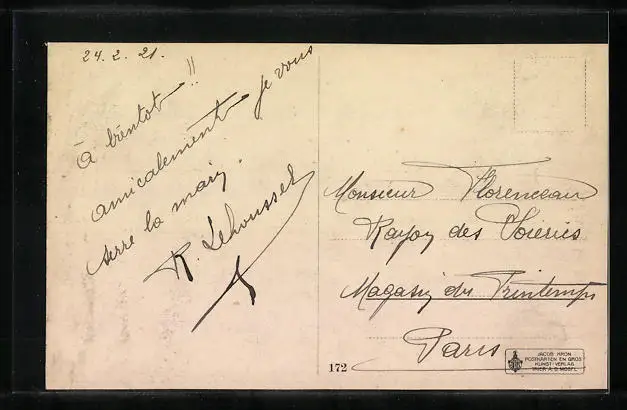 24. 2. 21.
à bientôt !!
amicalement je vous
serre la main.
R. Lehousset
Monsieur Florenceau
Rayon des Soieries
Magasin du Printemps
Paris
172
JACOB KRON
POSTKARTEN EN GROS
KUNST-VERLAG
TRIER A. D. MOSEL